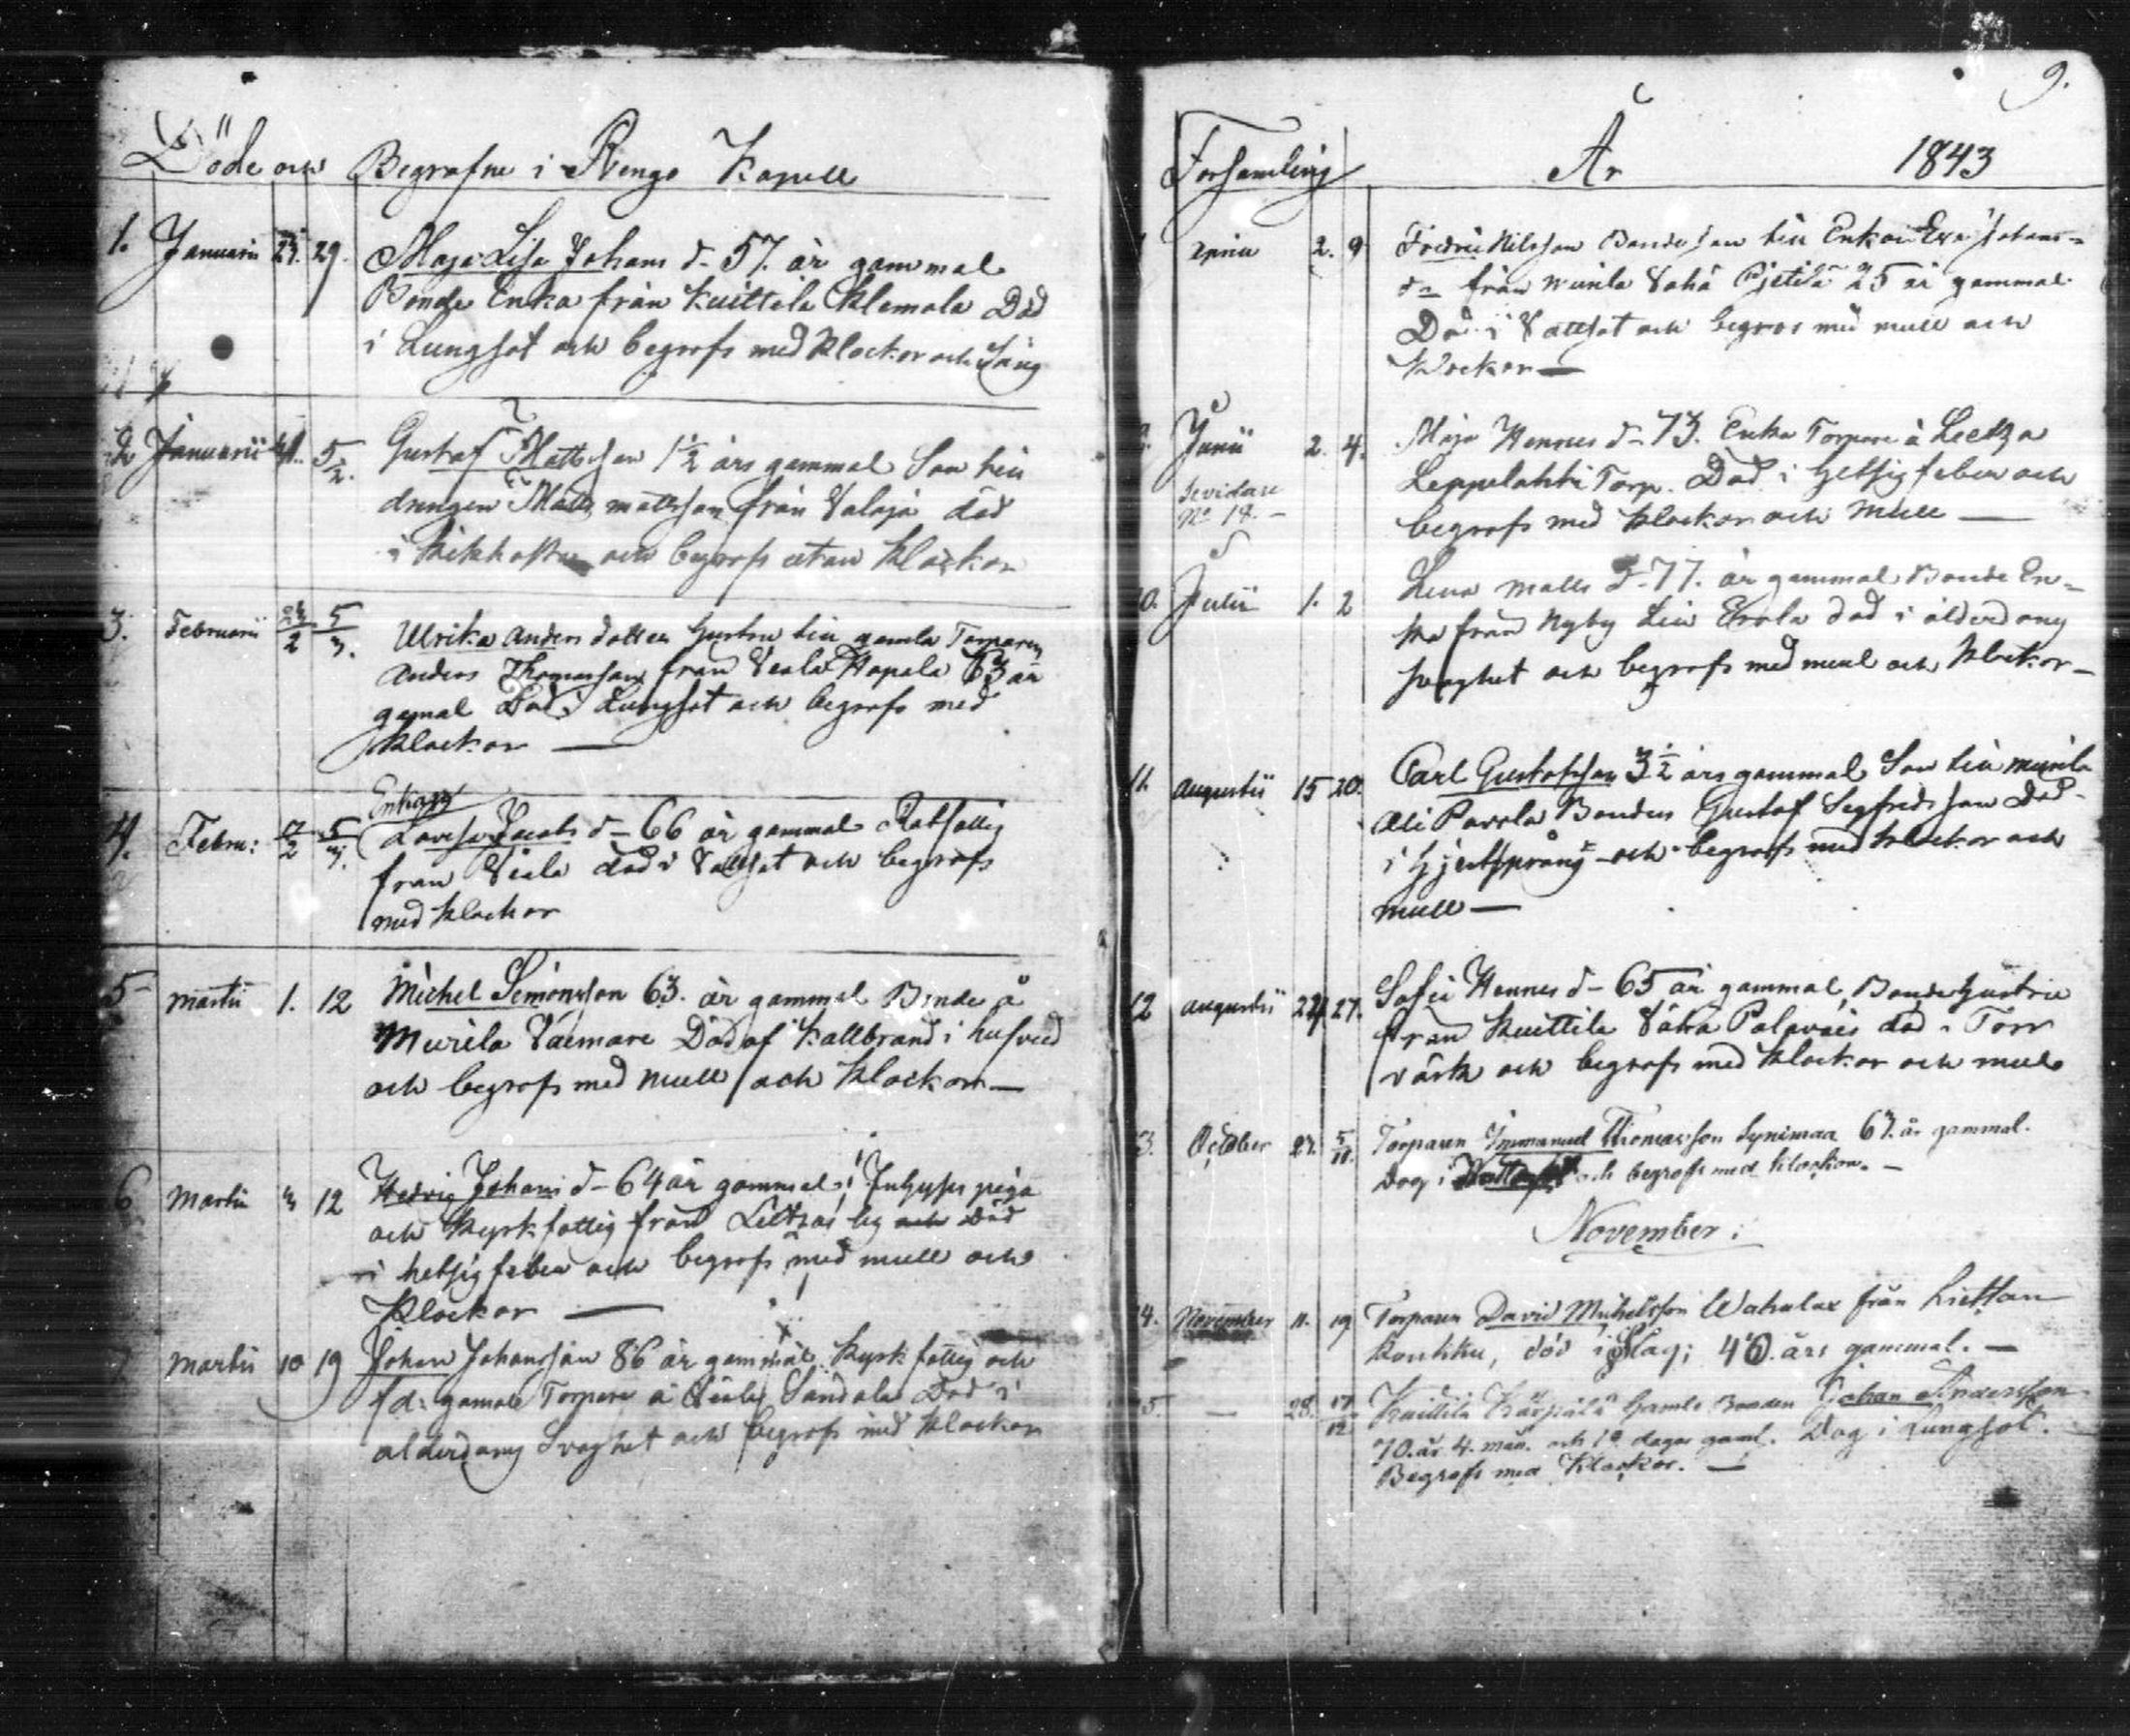 Döde och Begrafne i Rengo Kapell
1. Januarii 23. 29. Maja Lisa Johans d- 57. år gammal
Bonde Enka från Kuittila Klemola Död
i Lungsot och begrofs med Klockor och Sång
2 Januarii 31. 5/2. Gustaf Mattsson 1 1/2 års gammal Son till
drengen Matts mattsson från Valaja död
i Kikhosta och begrofs utan Klockor
3. Februarii 24/2 5/3. Ulrika Anders dotter Hustru till gamla Torparen
Anders Thomasson från Vesala Hapala 63 år
gamal Död i Lungsot och begrofs med
Klockor —
Enkan
4. Febru: 27/2 5/3. Lovisa Jacobs d- 66 år gammal Rotfattig
från död i Vattsot och begrofs
med Klockor
5 Martii 1. 12 Michel Simonsson 63. år gammal Bonde å
Murila Vaemare Död af Kallbrand i hufvud
och begrofs med mull och Klockor —
6 Martii 3 12 Hedvig Johans d- 64 år gammal Inhyses piga
och Kyrkfattig från by och död
i hetsig feber och begrofs med mull och
Klockor —
7 Martii 10 19 Johan Johansson 86 år gammal Kyrkfattig och
fd: gamal Torpare å Sandala Död i
alderdoms Svaghet och begrofs med Klockor
9.
Forsamling År 1843
April 2. 9 Fredric Nilsson Bonde Son till Enkan Eva Johans=
d= från Murila Vähä Pjetilä 25 år gammal
Död i Vattsot och begrofs med mull och
Klockor —
Junii 2. 4. Maja Hennes d- 73. Enka Torpare å
Leppelahti Torp. Död i Hetsig feber och
begrofs med Klockor och Mull —
Se vidare
No 14. —
10. Julii 1. 2 Lena Matts d- 77. år gammal Bonde En=
ka från Nyby Erola död i ålderdoms
svaghet och begrofs med mull och Klockor —
11. Augustii 15 20. Carl Gustafsson 3 1/2 års gammal Son till Murila
Ali Pavola Bonden Gustaf Segfredsson Död
i Hjertsprång och begrofs med Klockor och
mull —
12 Augustii 24 27. Sofia Hennes d- 65 år gammal, Bonde Hustru
från Kuittila Vähä Palovais död i Torr
värk och begrofs med Klockor och mull
3. October 27. 5/11. Torparen Immanuel Thomasson Synimaa 67. år gammal.
Dog i och begrofs med Klockor. —
November:
4. November 11. 19 Torparen David Michelsson från
död i Slag; 46. års gammal. —
5. — 28. 17/12 Kuittila Kärpälä Gamle Bonden Johan Andersson
70. år 4. mån. och 19 dagar gaml. Dog i Lungsot.
Begrofs med Klockor. —